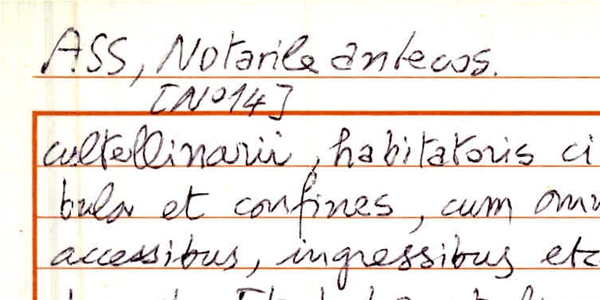 ASS, Notarile antecos.
[N° 14]
cultellinarii, habitatoris ci
bula et confines, cum omn
accessibus, ingressibus etc